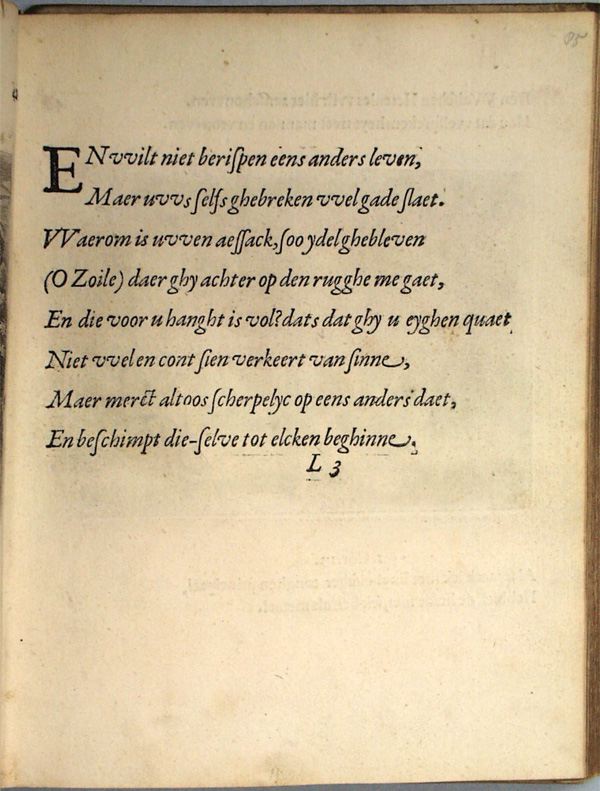 85
EN vvilt niet beriſpen eens anders leven,
Maer uvvs ſelfs ghebreken vvel gade ſlaet.
VVaerom is uvven aeſſack, ſoo ydel ghebleven
(O Zoile) daer ghy achter op den rugghe me gaet,
En die voor u hanght is vol? dats dat ghy u eyghen quaet
Niet vvel en cont ſien verkeert van ſinne,
Maer merct altoos ſcherpelyc op eens anders daet,
En beſchimpt die-ſelve tot elcken beghinne.
L 3